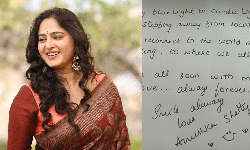 blue light to candle light
stepping away from social
reconnect to the world and
ing, to where we all
all soon with more
love... always forever..
Smile always
love
Anushka Shetty